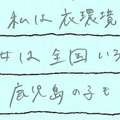 私は衣環境
は全国いろ
鹿児島の子も